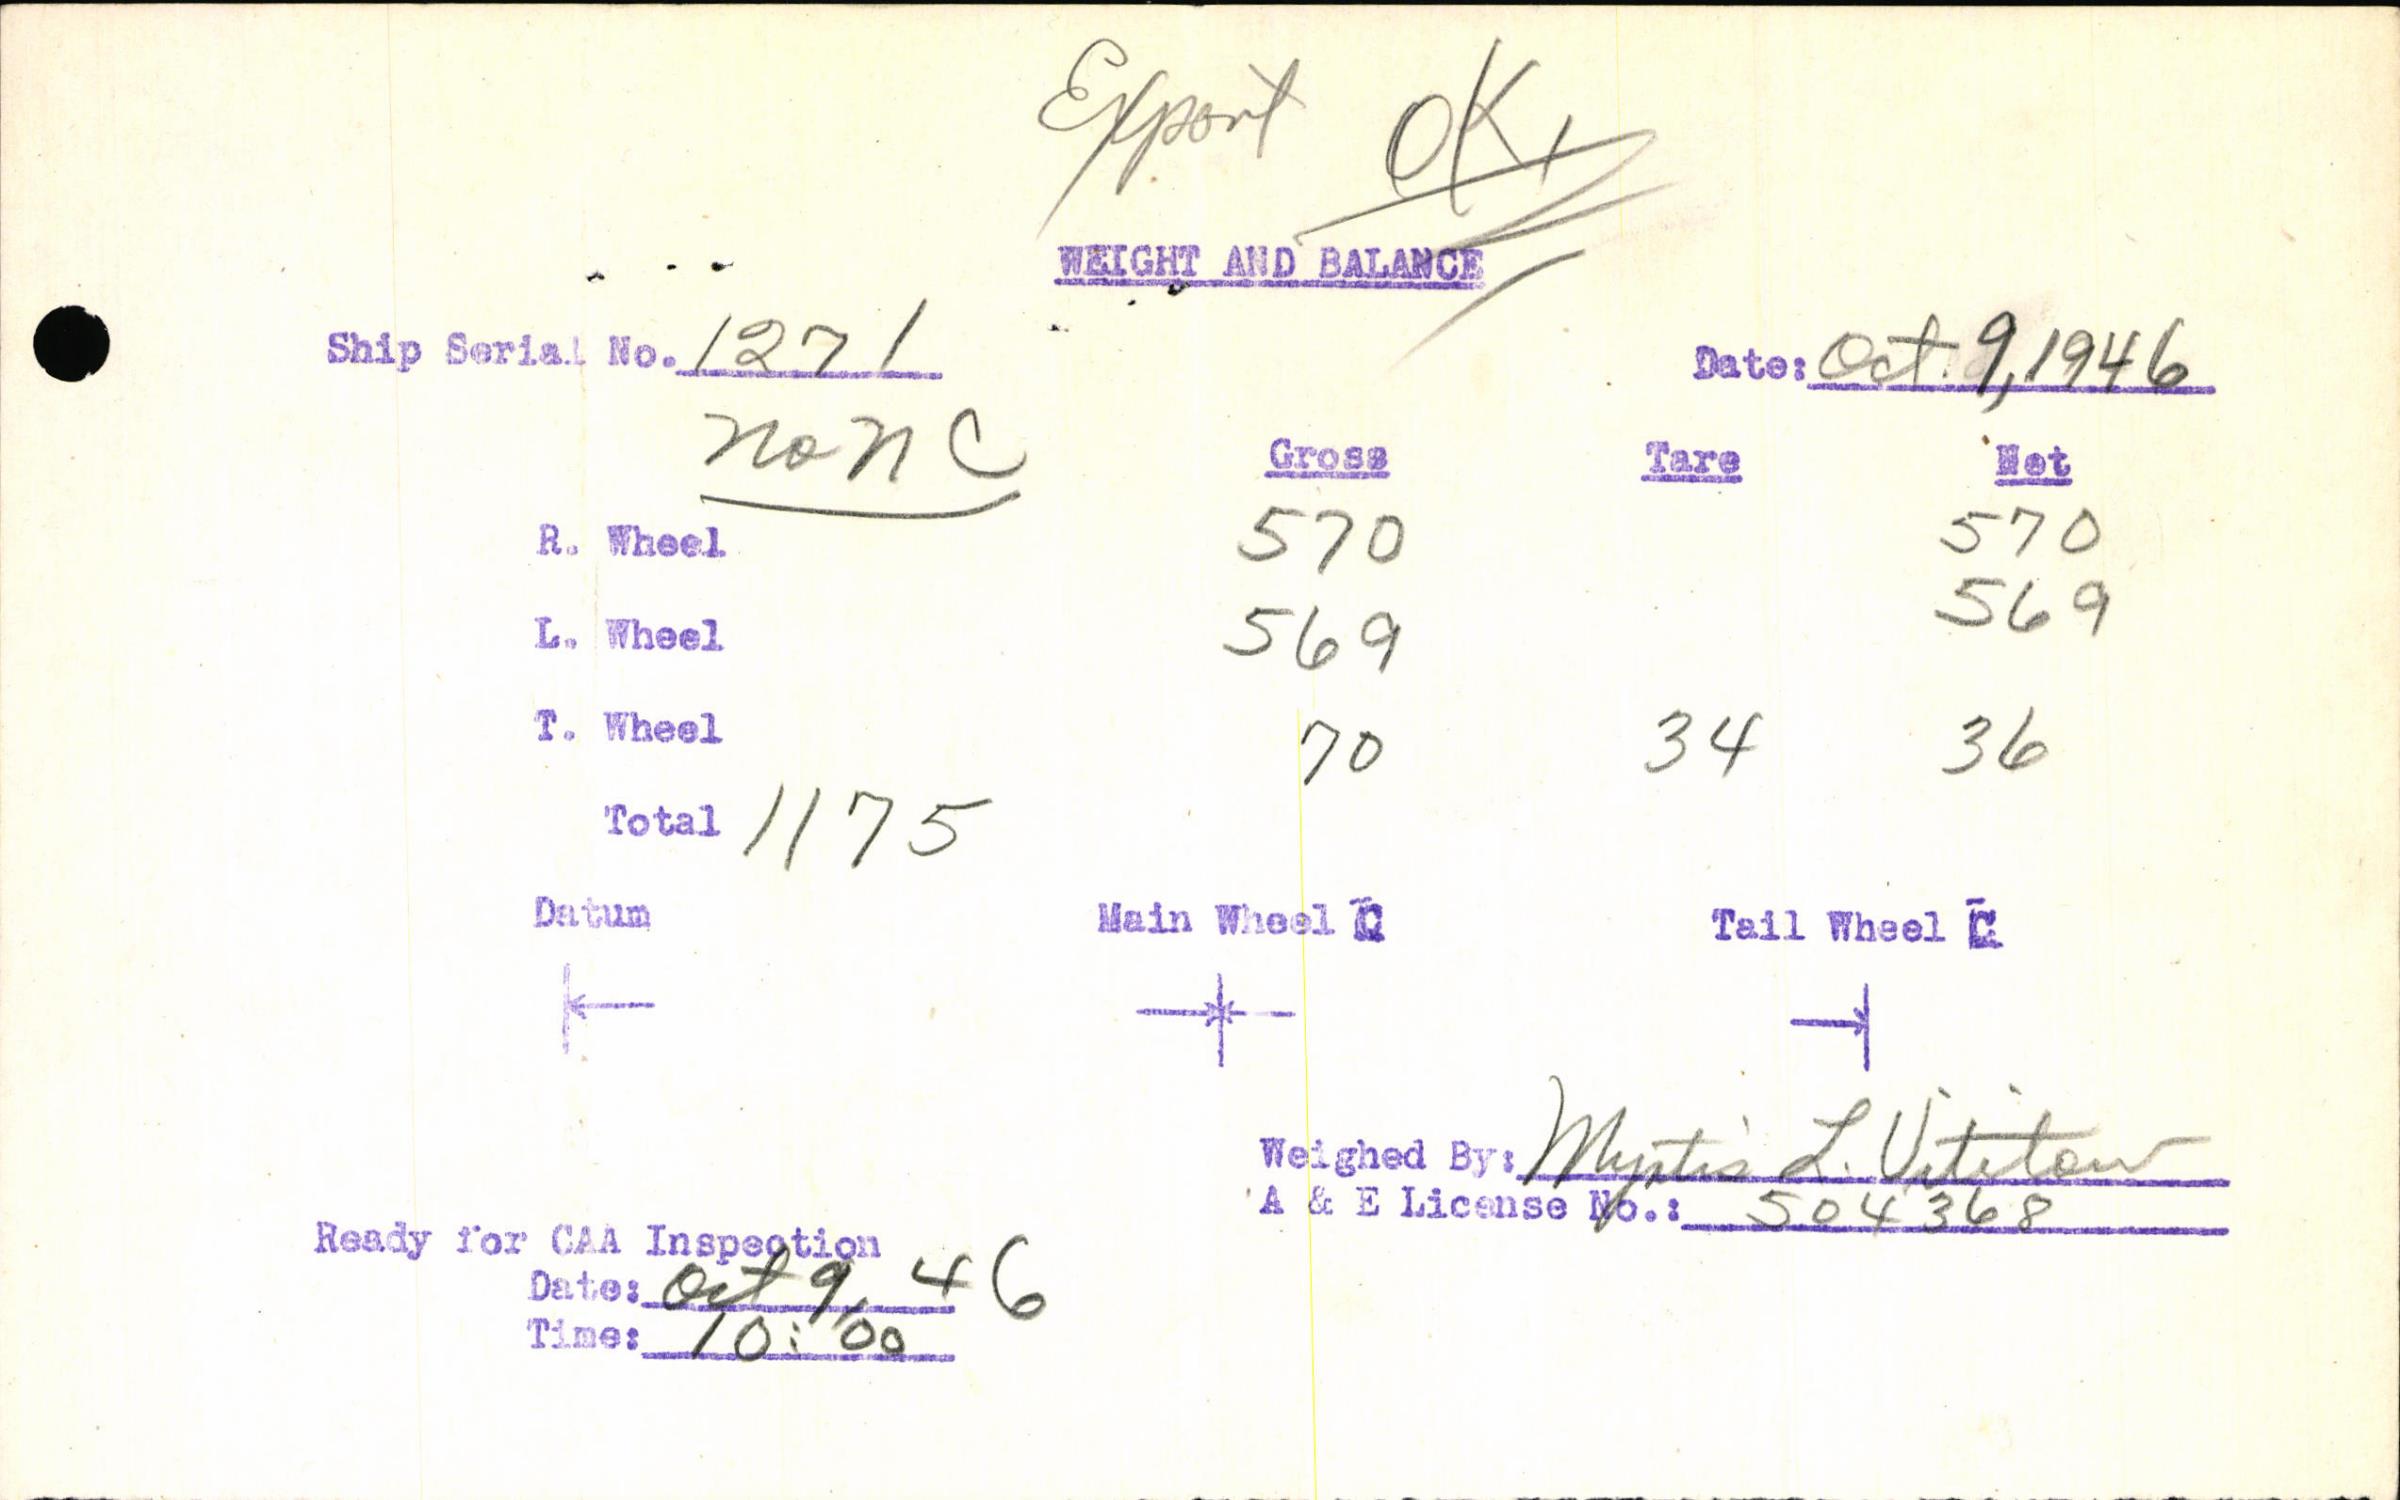 Export OK
WEIGHT AND BALANCE
Ship Serial No. 1271 Date: Oct 9, 1946
No NC
Gross Tare Net
R. Wheel 570 570
L. Wheel 569 569
T. Wheel 70 34 36
Total 1175
Datum Main Wheel C Tail Wheel C
Weighed By: Myrtis L. Vititow
A & E License No.: 504368
Ready for CAA Inspection
Date: Oct 9, 46
Time: 10:00